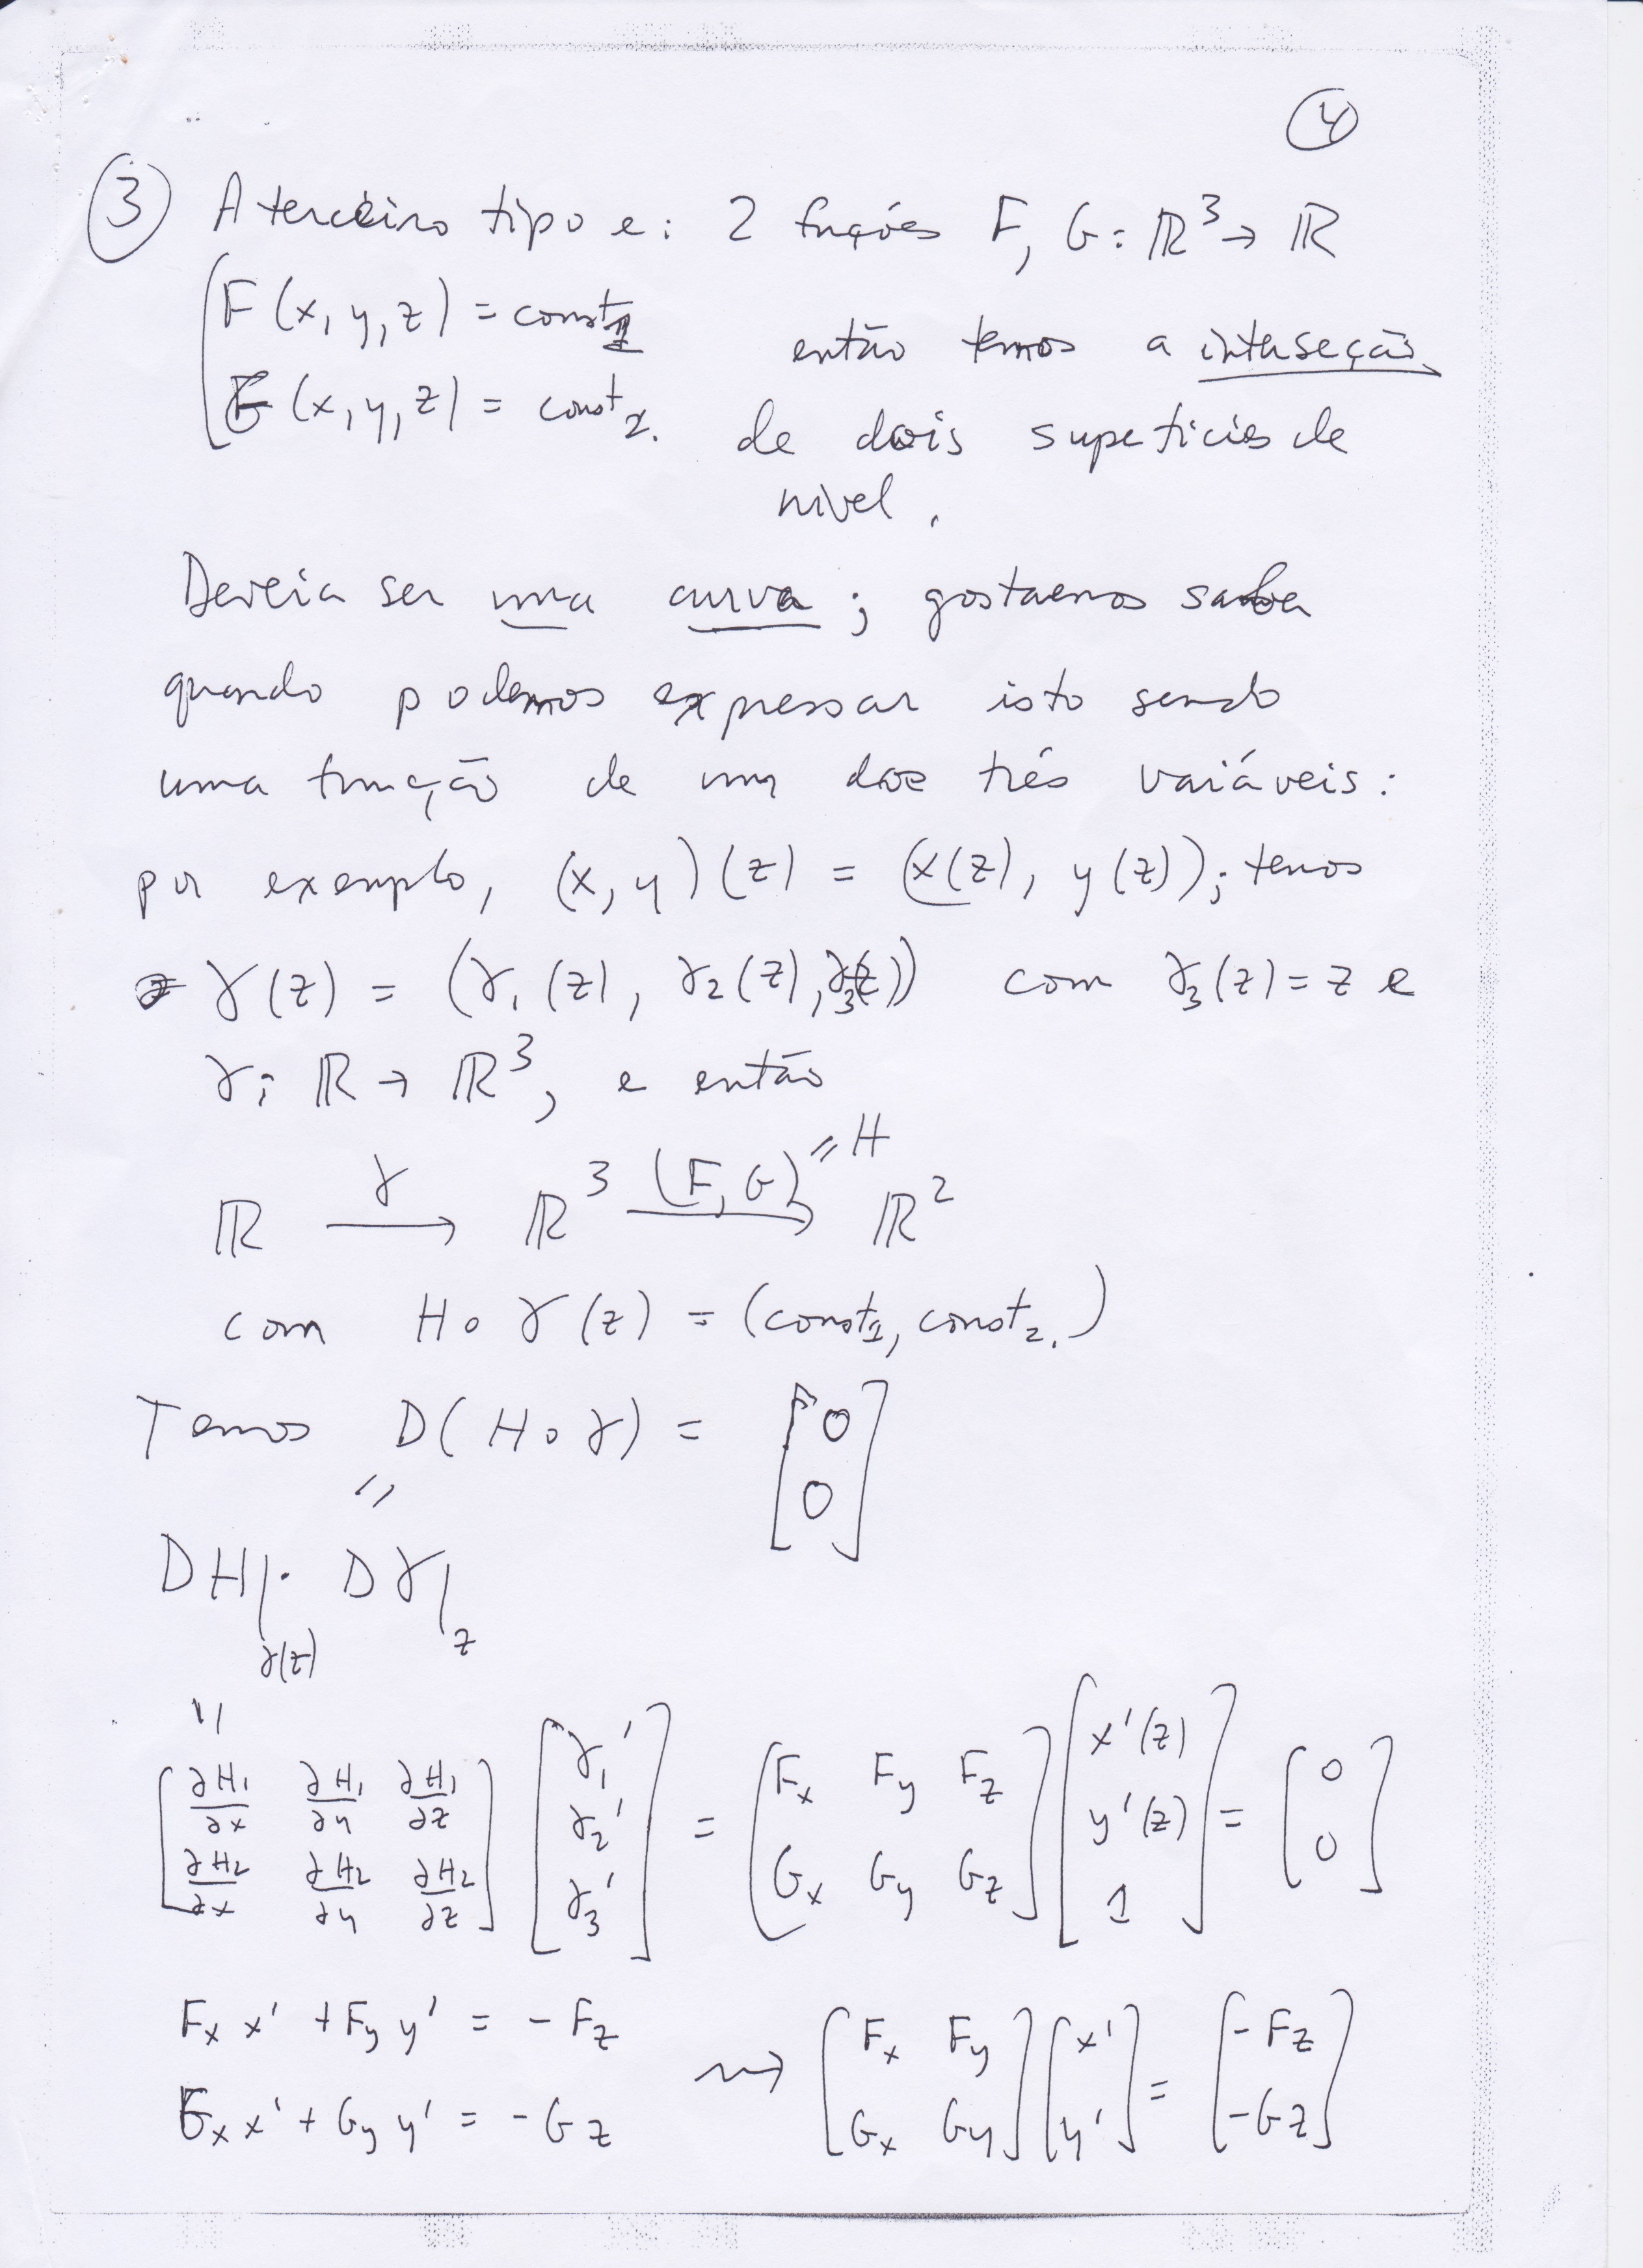 ④
③ A terceiro tipo e: 2 funções F, G: ℝ³ → ℝ
F(x, y, z) = const₁
então temos a interseção
G(x, y, z) = const₂.
de dois superficies de
nivel.
Deveria ser uma curva; gostaemos saber
quando podemos expressar isto sendo
uma função de um dos três variáveis:
por exemplo, (x, y)(z) = (x(z), y(z)); temos
γ(z) = (γ₁(z), γ₂(z), γ₃(z)) com γ₃(z) = z e
γ: ℝ → ℝ³, e então
ℝ —γ→ ℝ³ —(F, G) = H→ ℝ²
com H∘γ(z) = (const₁, const₂.)
Temos D(H∘γ) = [0; 0]
=
DH|γ(z) · Dγ|z
=
[∂H₁/∂x ∂H₁/∂y ∂H₁/∂z; ∂H₂/∂x ∂H₂/∂y ∂H₂/∂z] [γ₁'; γ₂'; γ₃'] = [Fx Fy Fz; Gx Gy Gz] [x'(z); y'(z); 1] = [0; 0]
Fx x' + Fy y' = -Fz
Gx x' + Gy y' = -Gz
⇝ [Fx Fy; Gx Gy] [x'; y'] = [-Fz; -Gz]